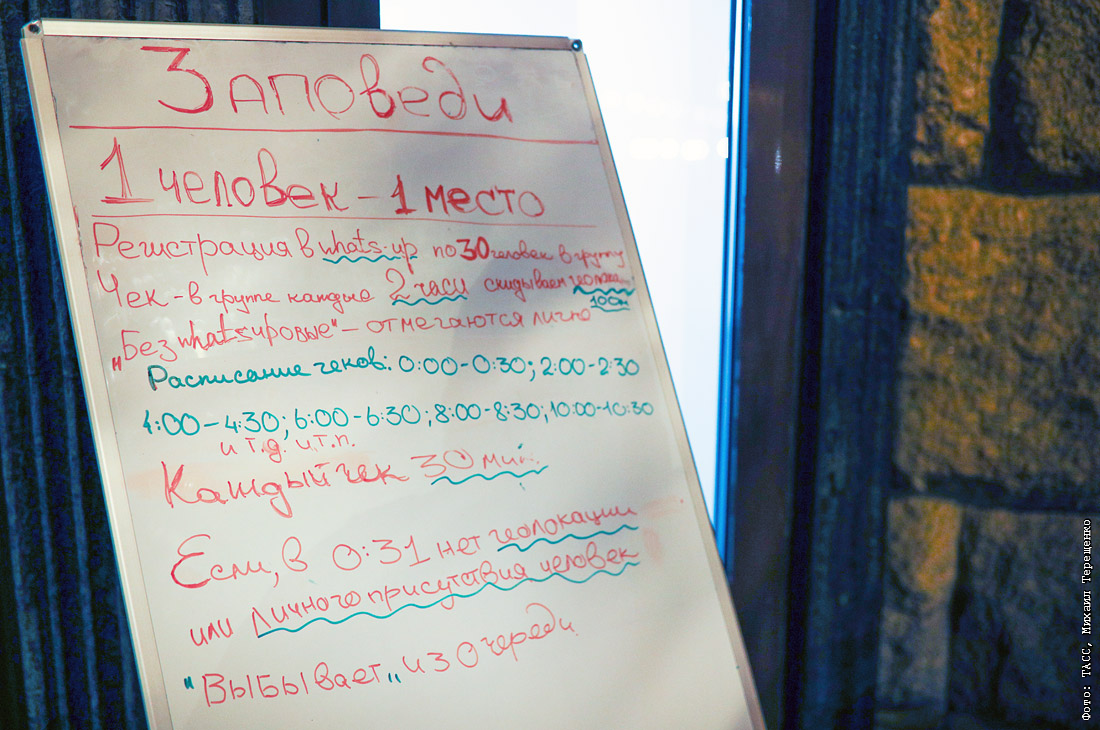 Заповеди
1 человек - 1 место
Регистрация в whats-up по 30 человек в группу
Чек - в группе каждые 2 часа скидываем
100м
"Без whatsupовые" - отмечаются лично
Расписание чеков: 0:00-0:30; 2:00-2:30
4:00-4:30; 6:00-6:30; 8:00-8:30; 10:00-10:30
и т.д. и.т.п.
Каждый чек 30 мин.
Если, в 0:31 нет геолокации
или личного присутствия человек
"Выбывает" из очереди.
Фото: ТАСС, Михаил Терещенко